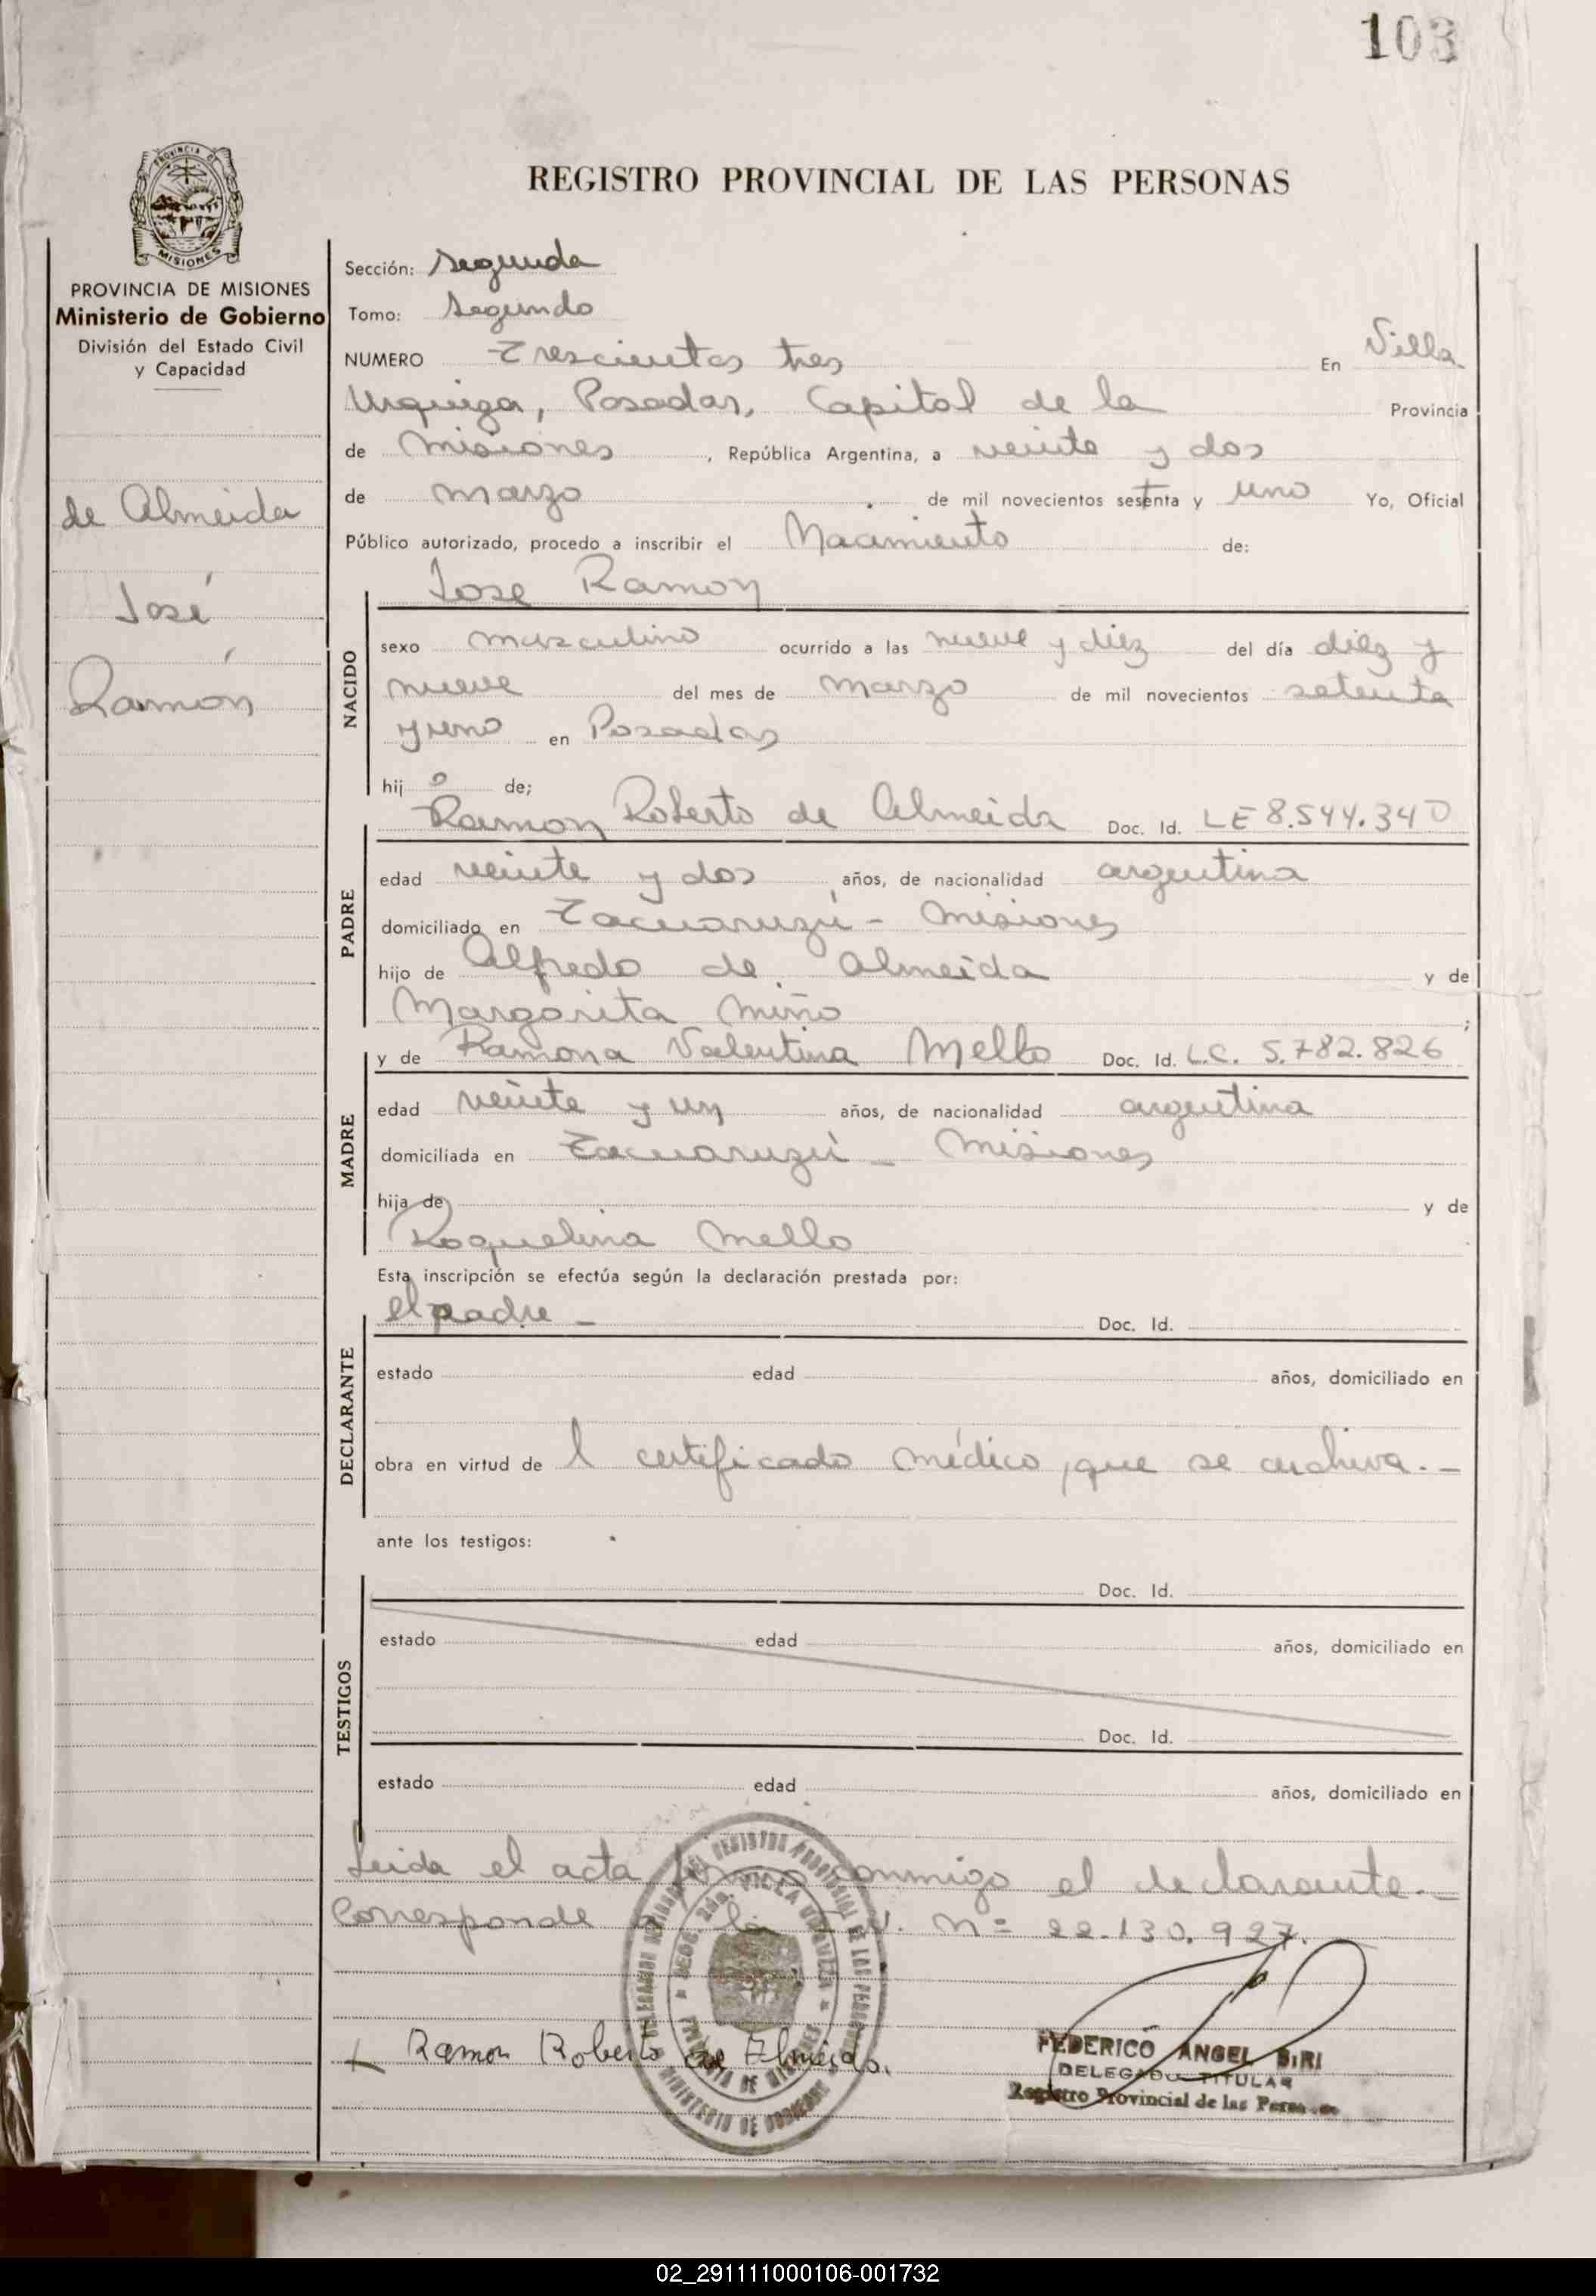 103
REGISTRO PROVINCIAL DE LAS PERSONAS
PROVINCIA DE MISIONES
PROVINCIA DE MISIONES
Ministerio de Gobierno
División del Estado Civil
y Capacidad
de Almeida
José
Ramón
Sección: Segunda
Tomo: Segundo
NUMERO Trescientos tres En Villa
Urquiza, Posadas, Capital de la Provincia
de Misiones, República Argentina, a veinte y dos
de marzo de mil novecientos setenta y uno Yo, Oficial
Público autorizado, procedo a inscribir el Nacimiento de:
Jose Ramon
NACIDO
sexo masculino ocurrido a las nueve y diez del día diez y
nueve del mes de marzo de mil novecientos setenta
y uno en Posadas
hij o de;
Ramon Roberto de Almeida Doc. Id. LE 8.544.340
PADRE
edad veinte y dos años, de nacionalidad argentina
domiciliado en Tacuaruzú - Misiones
hijo de Alfredo de Almeida y de
Margarita Miño ;
y de Ramona Valentina Mello Doc. Id. L.C. 5.782.826
MADRE
edad veinte y un años, de nacionalidad argentina
domiciliada en Tacuaruzú - Misiones
hija de y de
Roquelina Mello
Esta inscripción se efectúa según la declaración prestada por:
el padre - Doc. Id.
DECLARANTE
estado edad años, domiciliado en
obra en virtud de l certificado médico, que se archiva. -
ante los testigos:
Doc. Id.
TESTIGOS
estado edad años, domiciliado en
Doc. Id.
estado edad años, domiciliado en
Leida el acta firma conmigo el declarante. -
Corresponde a la N. Nº 22.130.927.
Ramon Roberto de Almeida.
SECC. 2da. VILLA URQUIZA
MINISTERIO DE GOBIERNO
FEDERICO ANGEL BIRI
DELEGADO TITULAR
Registro Provincial de las Personas
02_291111000106-001732